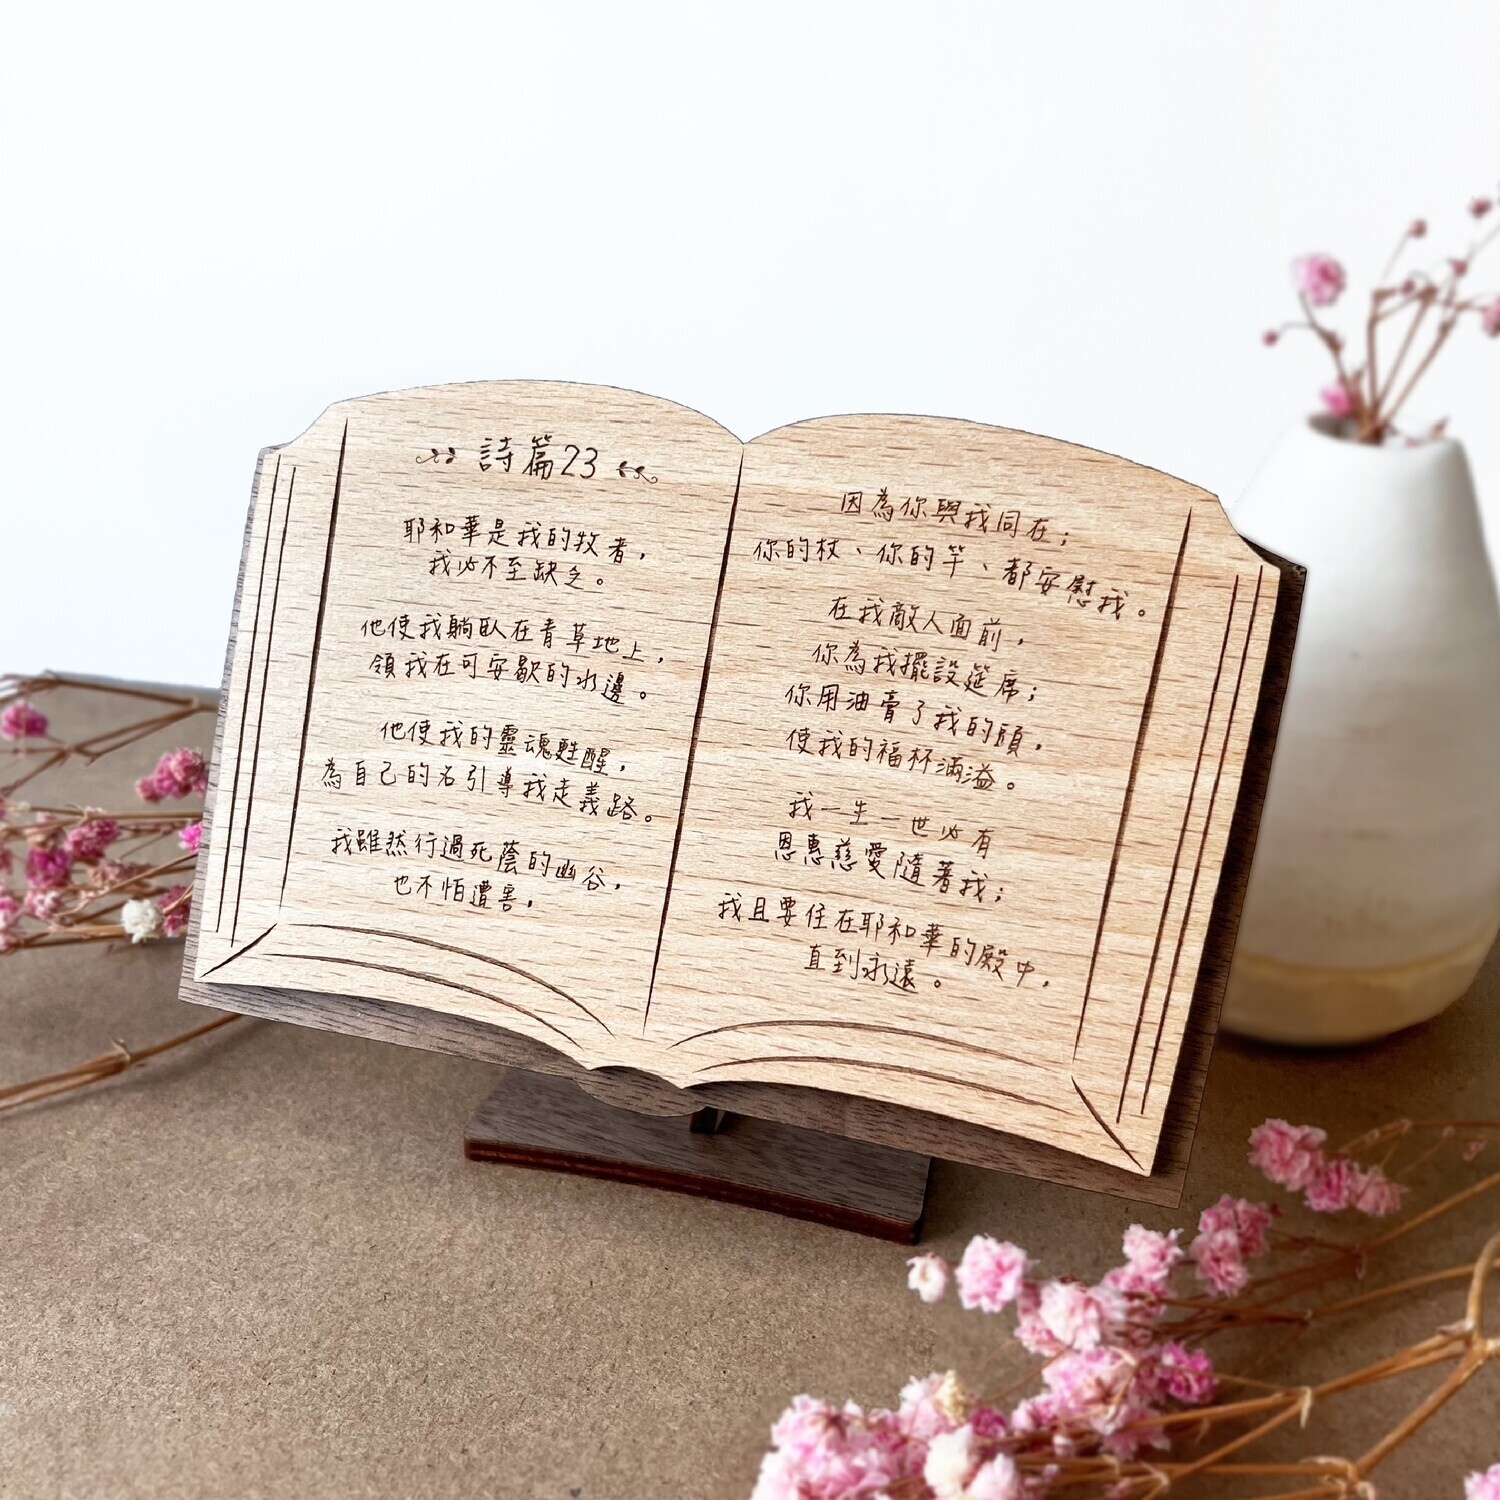 詩篇23
耶和華是我的牧者，
我必不至缺乏。
他使我躺臥在青草地上，
領我在可安歇的水邊。
他使我的靈魂甦醒，
為自己的名引導我走義路。
我雖然行過死蔭的幽谷，
也不怕遭害，
因為你與我同在；
你的杖、你的竿、都安慰我。
在我敵人面前，
你為我擺設筵席；
你用油膏了我的頭，
使我的福杯滿溢。
我一生一世必有
恩惠慈愛隨著我；
我且要住在耶和華的殿中，
直到永遠。